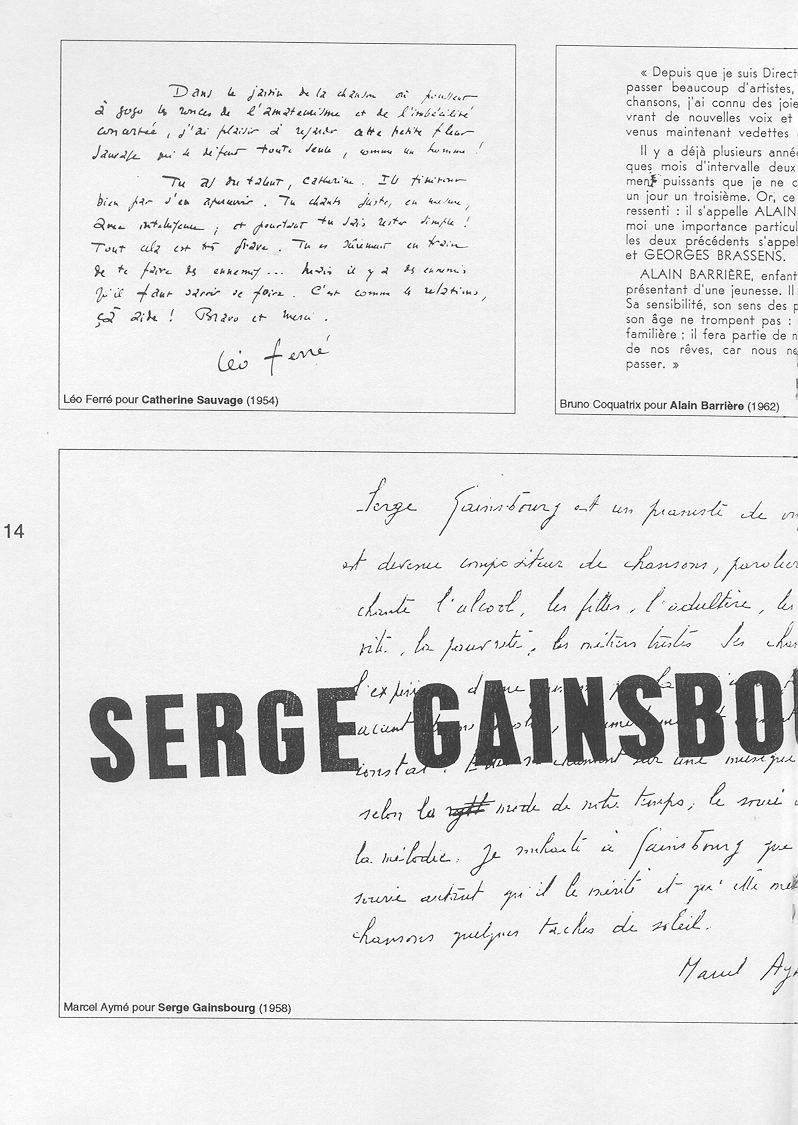 Dans le jardin de la chanson où poussent
à gogo les ronces de l'amateurisme et de l'imbécilité
concertée, j'ai plaisir à regarder cette petite fleur
sauvage qui se défend toute seule, comme un homme !
Tu as du talent, Catherine. Ils finiront
bien par s'en apercevoir. Tu chantes juste, en mesure,
avec intelligence ; et pourtant tu sais rester simple !
Tout cela est très grave. Tu es sûrement en train
de te faire des ennemis... Mais il y a des ennemis
qu'il faut savoir se faire. C'est comme les relations,
çà aide ! Bravo et merci.
Léo Ferré
Léo Ferré pour Catherine Sauvage (1954)
« Depuis que je suis Direct
passer beaucoup d'artistes,
chansons, j'ai connu des joie
vrant de nouvelles voix et
venus maintenant vedettes
Il y a déjà plusieurs anné
ques mois d'intervalle deux
ment puissants que je ne c
un jour un troisième. Or, ce
ressenti : il s'appelle ALAIN
moi une importance particul
les deux précédents s'appel
et GEORGES BRASSENS.
ALAIN BARRIÈRE, enfant
présentant d'une jeunesse. Il
Sa sensibilité, son sens des p
son âge ne trompent pas :
familière ; il fera partie de n
de nos rêves, car nous ne
passer. »
Bruno Coquatrix pour Alain Barrière (1962)
14
Serge Gainsbourg est un pianiste de
est devenu compositeur de chansons, parolier
chante l'alcool, les filles, l'adultère, les
vite, la pauvreté, les métiers tristes. Ses chan
SERGE GAINSBOU
constat. sur une musique
selon la mode de notre temps, le souci
la mélodie. Je souhaite à Gainsbourg que
sourie autant qu'il le mérite et qu'elle
chansons quelques taches de soleil.
Marcel Ay
Marcel Aymé pour Serge Gainsbourg (1958)